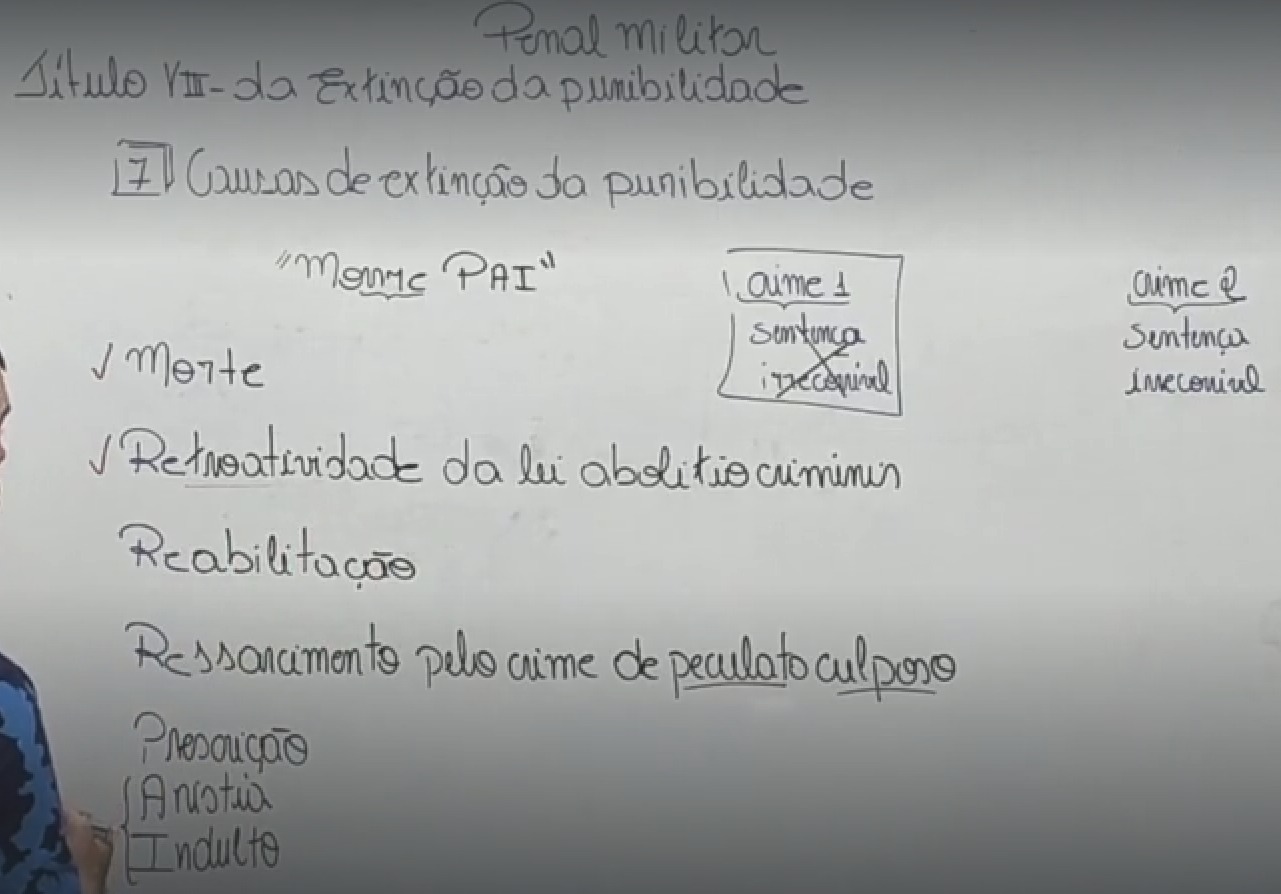 Penal militar
Título VIII - da Extinção da punibilidade
7 Causas de extinção da punibilidade
"Morrre PAI"
crime 1
sentença
irrecorrível
crime 2
Sentença
irrecorrível
✓ Morte
✓ Retroatividade da lei abolitio criminis
Reabilitação
Ressarcimento pelo crime de peculato culposo
Prescrição
Anistia
Indulto